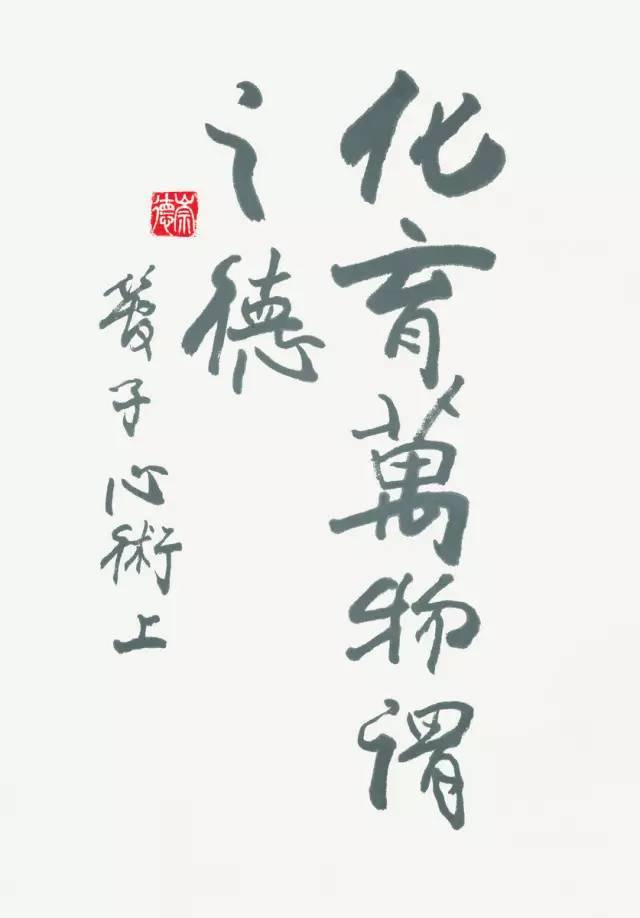 化育萬物謂
之德
管子心術上
崇德